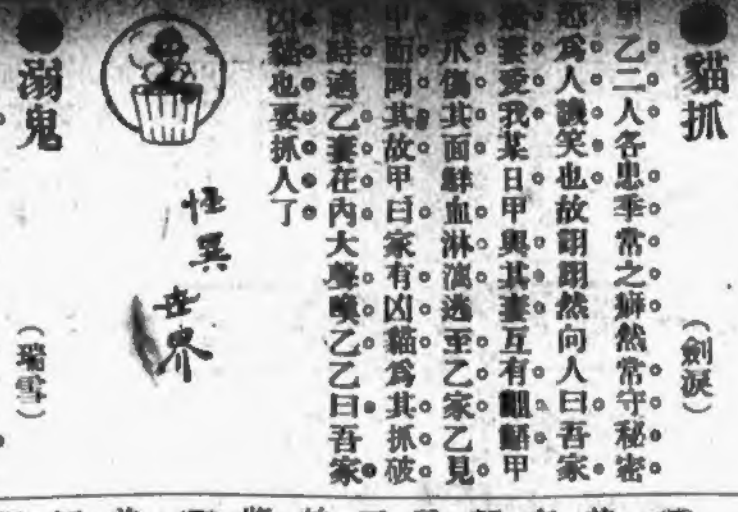 貓抓
(劍淚)
甲乙二人各患季常之癖然常守秘密
恐爲人譏笑也故翩翩然向人曰吾家
妻愛我某日甲與其妻互有齟齬甲
妻爪傷其面鮮血淋漓逃至乙家乙見
甲面問其故甲曰家有凶貓爲其抓破
時適乙妻在內大聲喚乙乙曰吾家
凶貓也要抓人了
怪異
世界
溺鬼
(瑞雪)